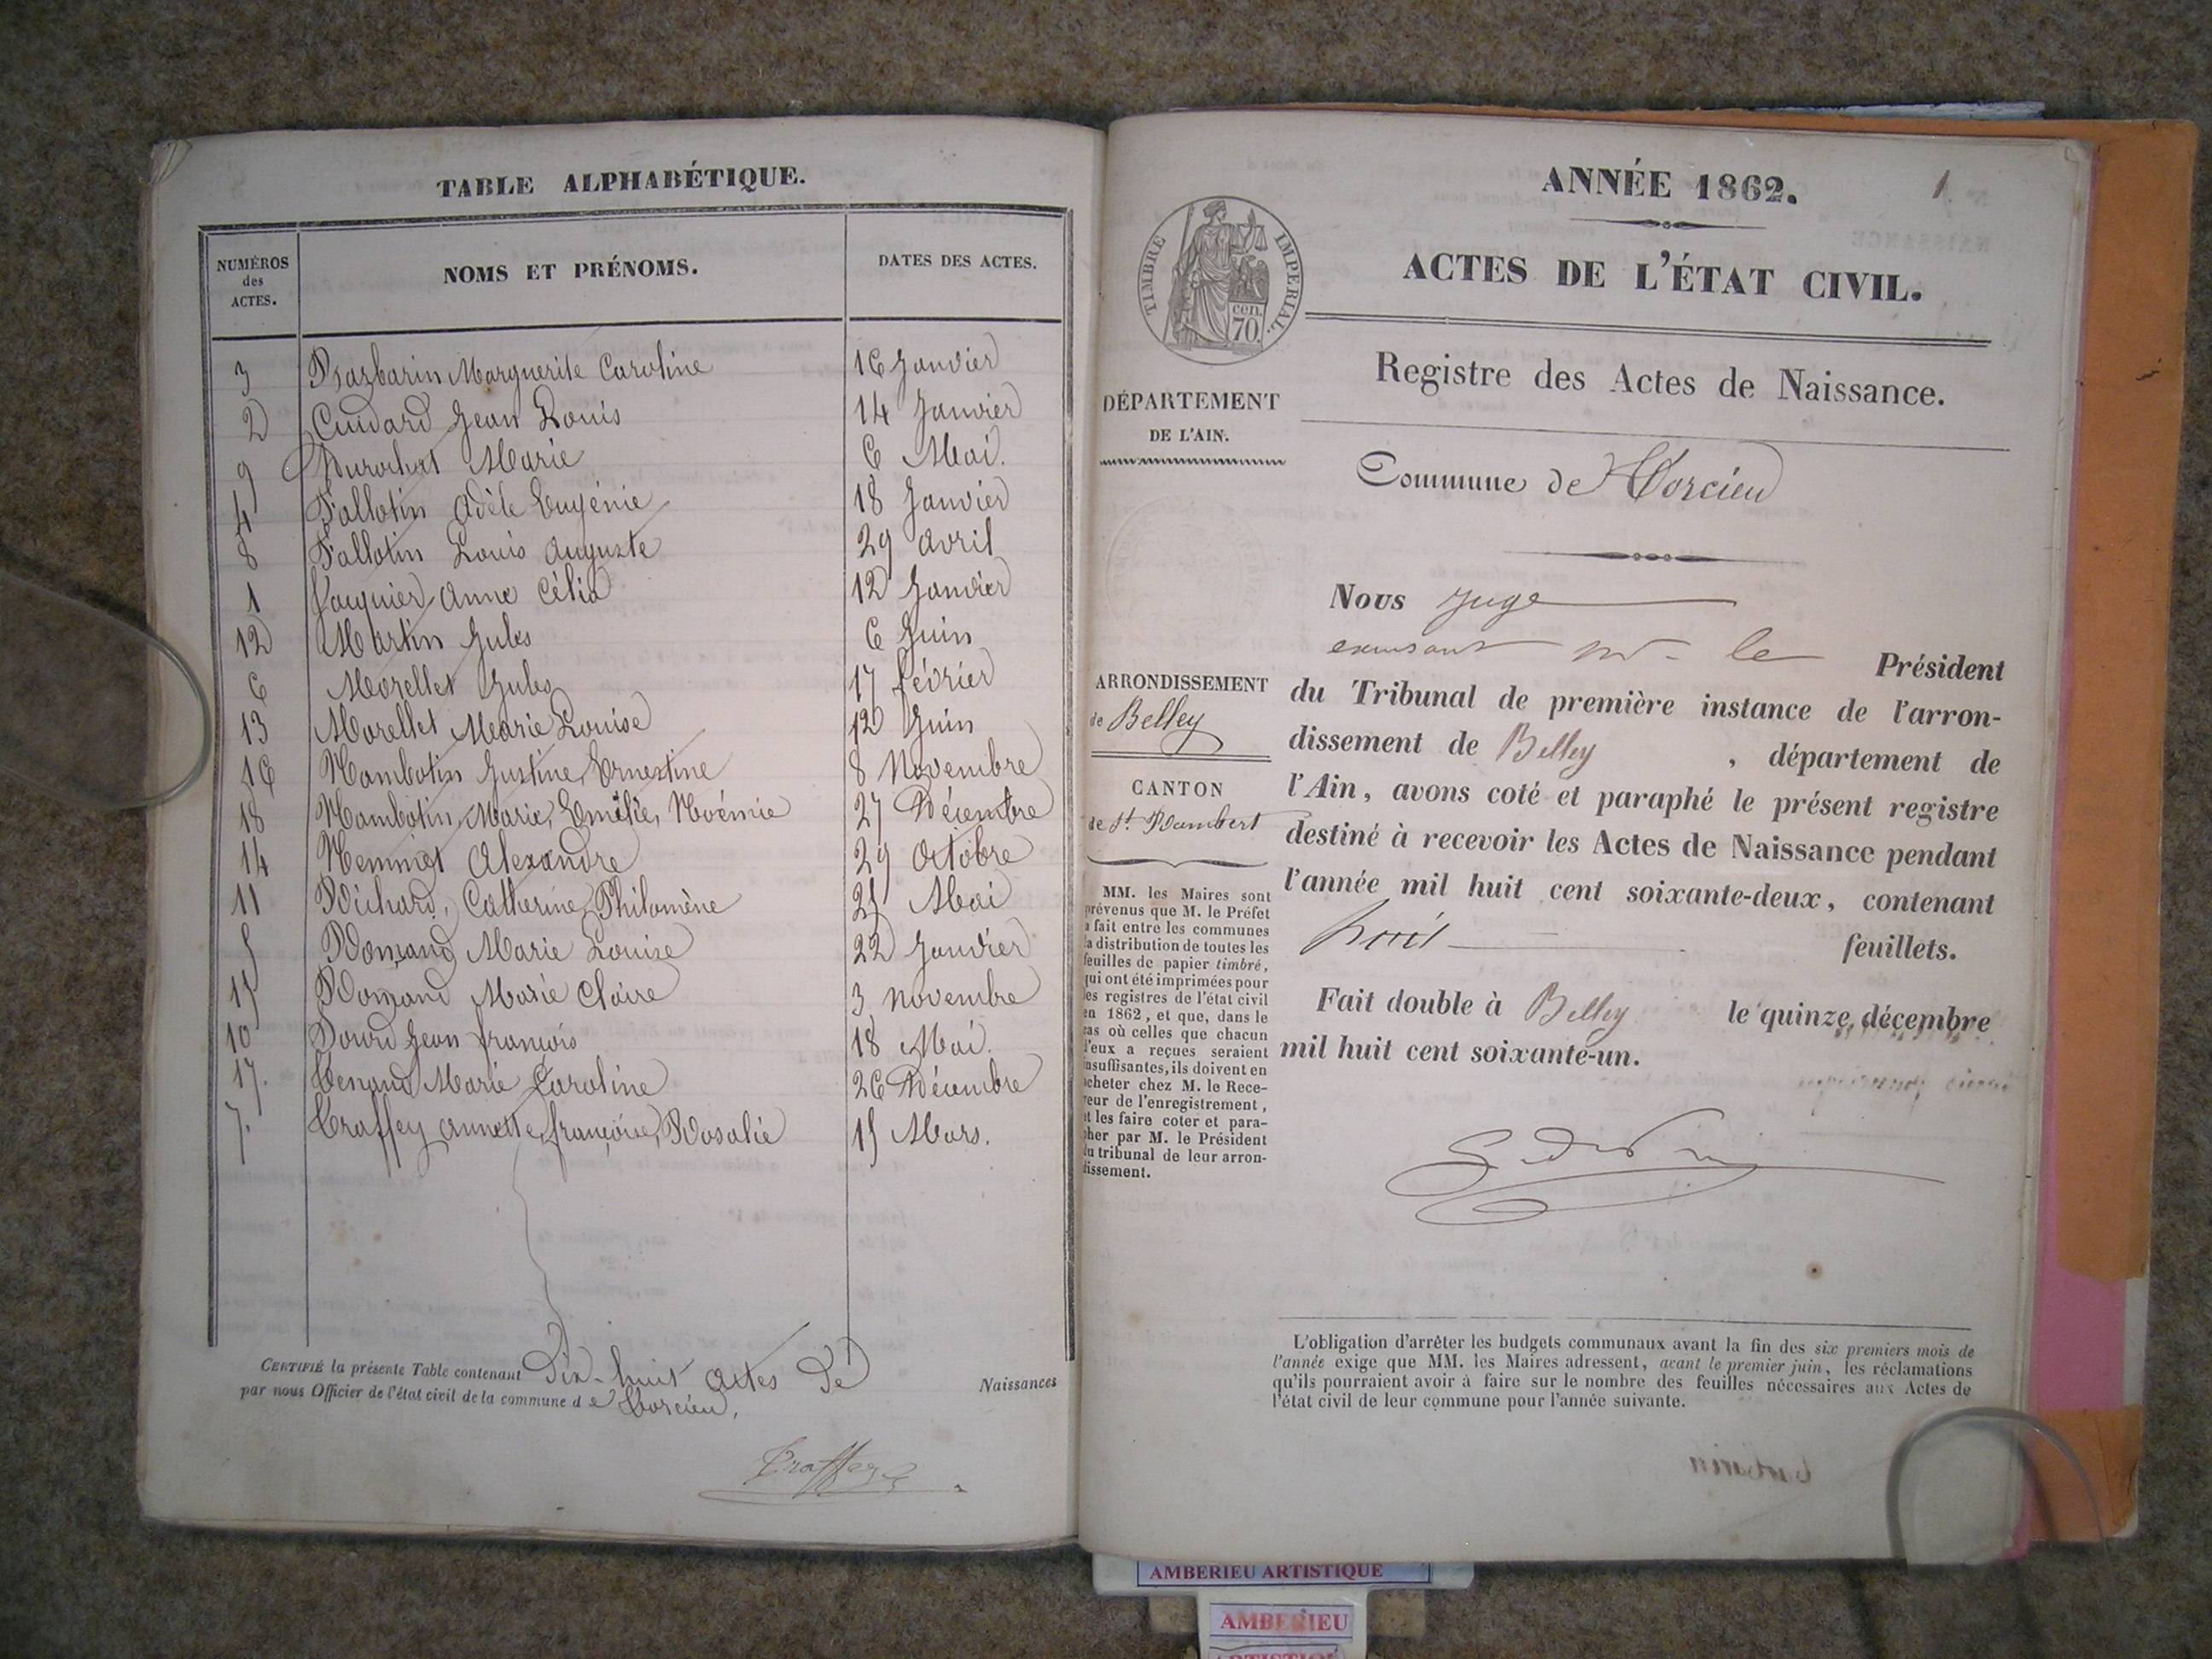 TABLE ALPHABÉTIQUE.
NUMÉROS des ACTES.
NOMS ET PRÉNOMS.
DATES DES ACTES.
3 Barbarin Marguerite Caroline 16 Janvier
2 Cudard Jean Louis 14 Janvier
9 Durochat Marie 6 Mai.
4 Fallotin Adèle Eugénie 18 Janvier
8 Fallotin Louis Auguste 29 avril
1 Jacquier Anne Célia 12 Janvier
12 Martin Jules 6 Juin
6 Morellet Jules 17 février
13 Morellet Marie Louise 12 Juin
16 Nambotin Justine, Ernestine 8 Novembre
18 Nambotin, Marie, Emélie, Noémie 27 Décembre
14 Hemmet Alexandre 29 Octobre
11 Richard, Catherine, Philomène 25 Mai
5 Romand Marie Louise 22 Janvier
15 Romand Marie Claire 3 novembre
10 Sourd Jean françois 18 Mai.
17. Tenand Marie Caroline 26 Décembre
7. Traffey annette, françoise, Rosalie 15 Mars.
CERTIFIÉ la présente Table contenant Dix-huit actes de Naissances
par nous Officier de l'état civil de la commune d e Torcieu.
Traffey
ANNÉE 1862.
1.
ACTES DE L'ÉTAT CIVIL.
TIMBRE IMPERIAL.
cen. 70.
Registre des Actes de Naissance.
DÉPARTEMENT
DE L'AIN.
Commune de Torcieu
Nous Juge
excusant Mr le Président
du Tribunal de première instance de l'arron-
dissement de Belley , département de
l'Ain, avons coté et paraphé le présent registre
destiné à recevoir les Actes de Naissance pendant
l'année mil huit cent soixante-deux, contenant
huit feuillets.
Fait double à Belley le quinze décembre
mil huit cent soixante-un.
ARRONDISSEMENT
de Belley
CANTON
de St. Rambert
MM. les Maires sont
prévenus que M. le Préfet
a fait entre les communes
la distribution de toutes les
feuilles de papier timbré,
qui ont été imprimées pour
les registres de l'état civil
en 1862, et que, dans le
cas où celles que chacun
d'eux a reçues seraient
insuffisantes, ils doivent en
acheter chez M. le Rece-
veur de l'enregistrement,
et les faire coter et para-
pher par M. le Président
du tribunal de leur arron-
dissement.
L'obligation d'arrêter les budgets communaux avant la fin des six premiers mois de
l'année exige que MM. les Maires adressent, avant le premier juin, les réclamations
qu'ils pourraient avoir à faire sur le nombre des feuilles nécessaires aux Actes de
l'état civil de leur commune pour l'année suivante.
AMBERIEU ARTISTIQUE
AMBERIEU
ARTISTIQUE